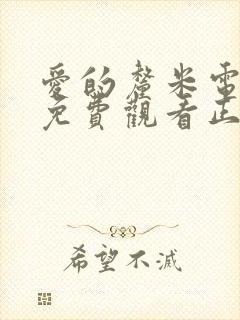 愛的釐米電
免費觀看正
希望不滅